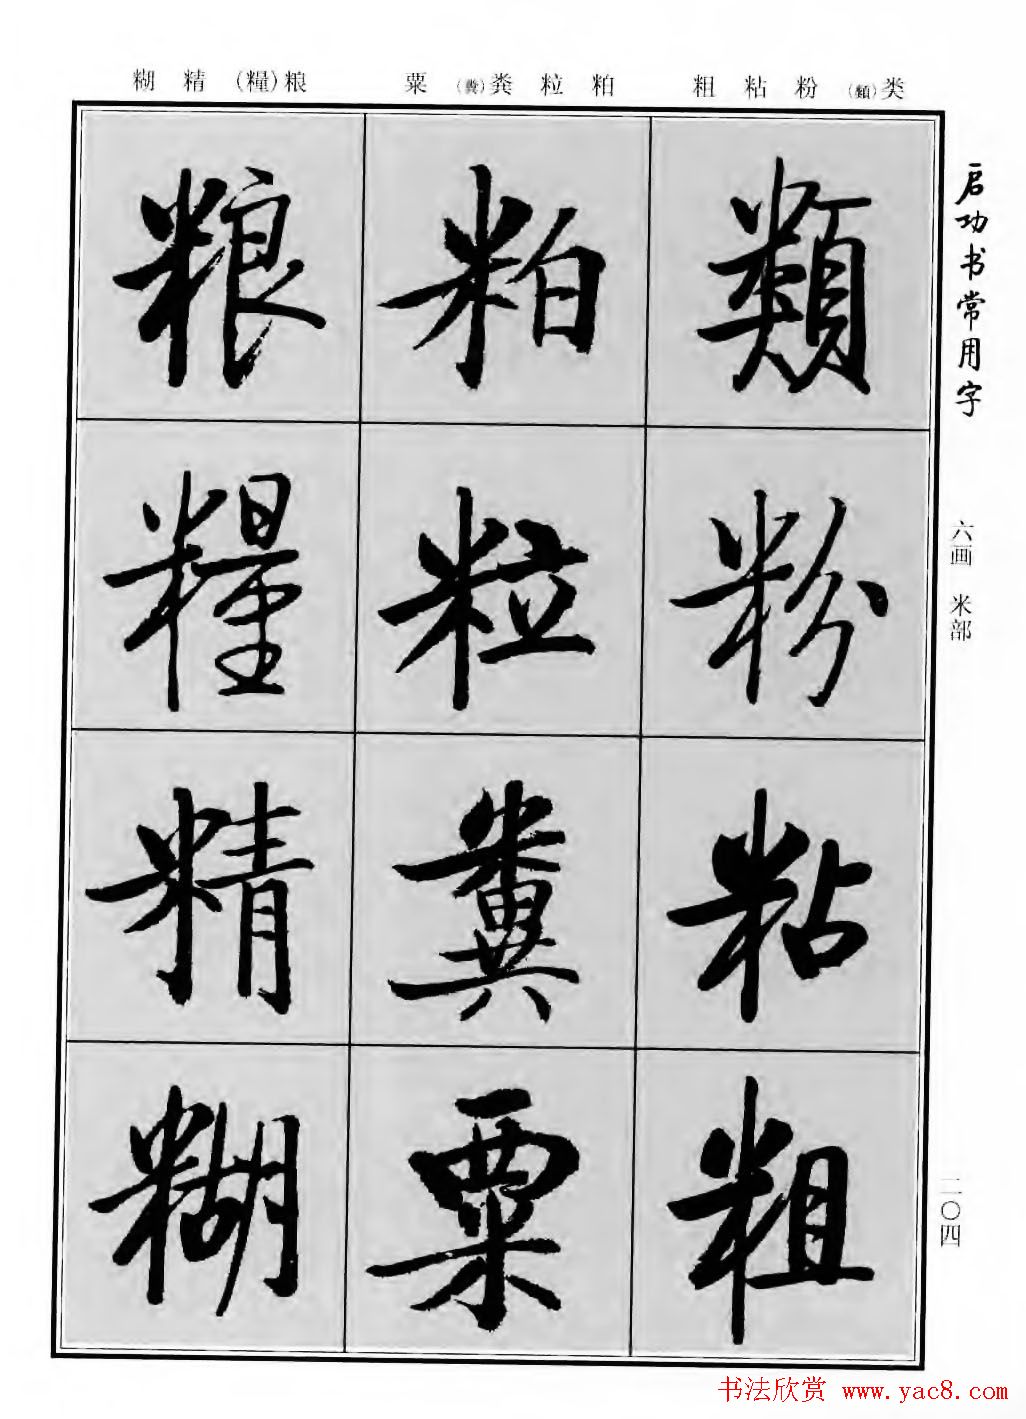 糊 精 (糧)粮 粟 (糞)粪 粒 粕 粗 粘 粉 (類)类
启功书常用字
六画 米部
二〇四
類
粉
粘
粗
粕
粒
糞
粟
粮
糧
精
糊
书法欣赏 www.yac8.com